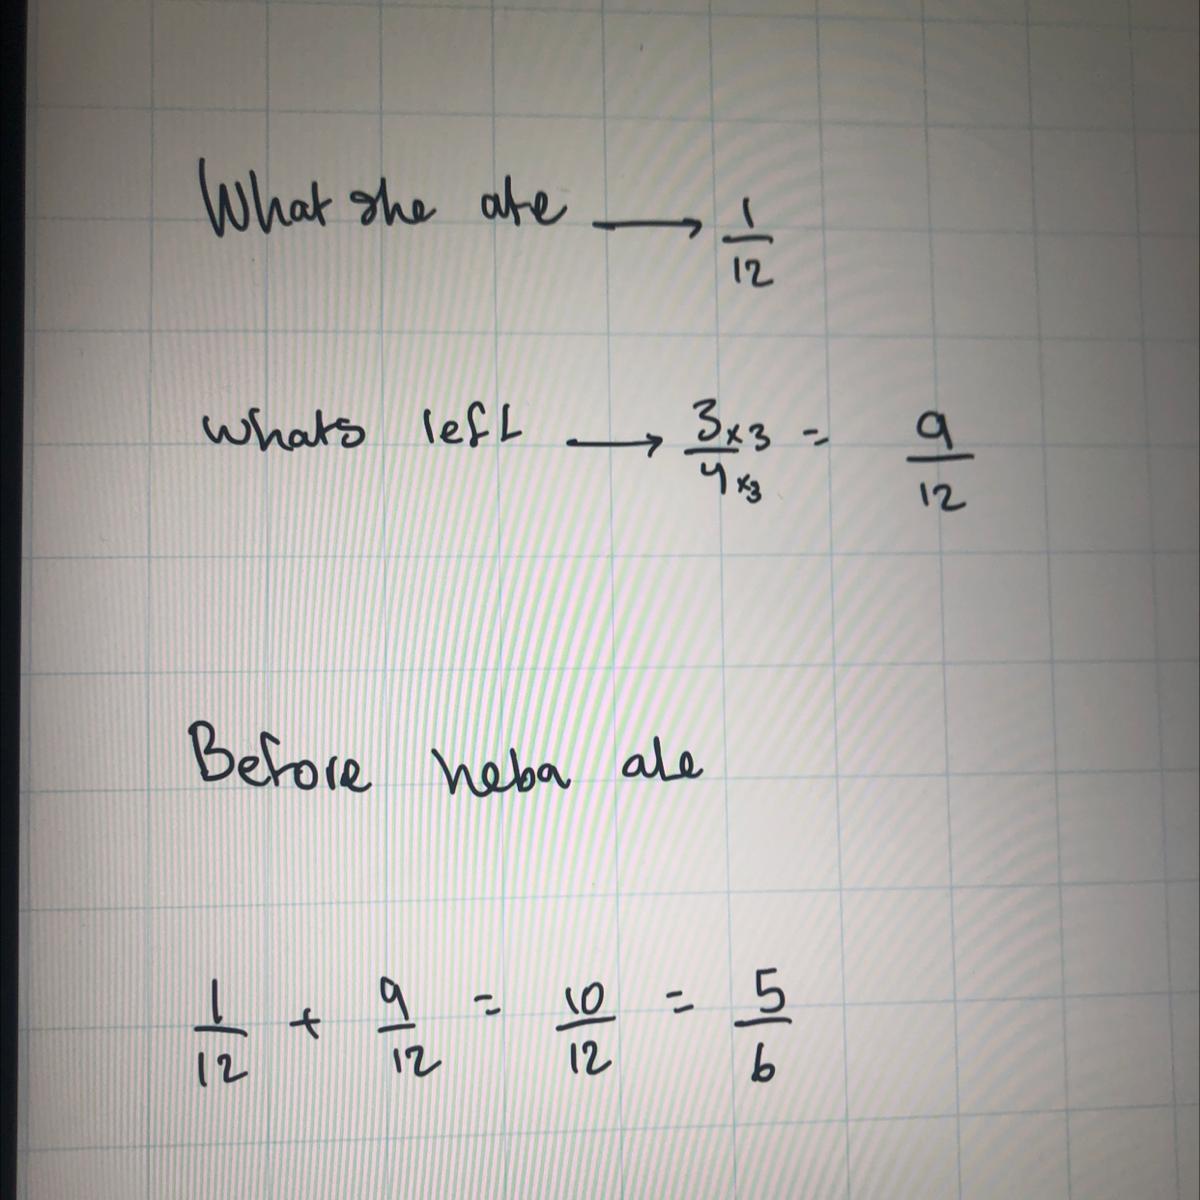 What she ate → 1/12
whats left → 3×3/4×3 = 9/12
Before heba ate
1/12 + 9/12 = 10/12 = 5/6